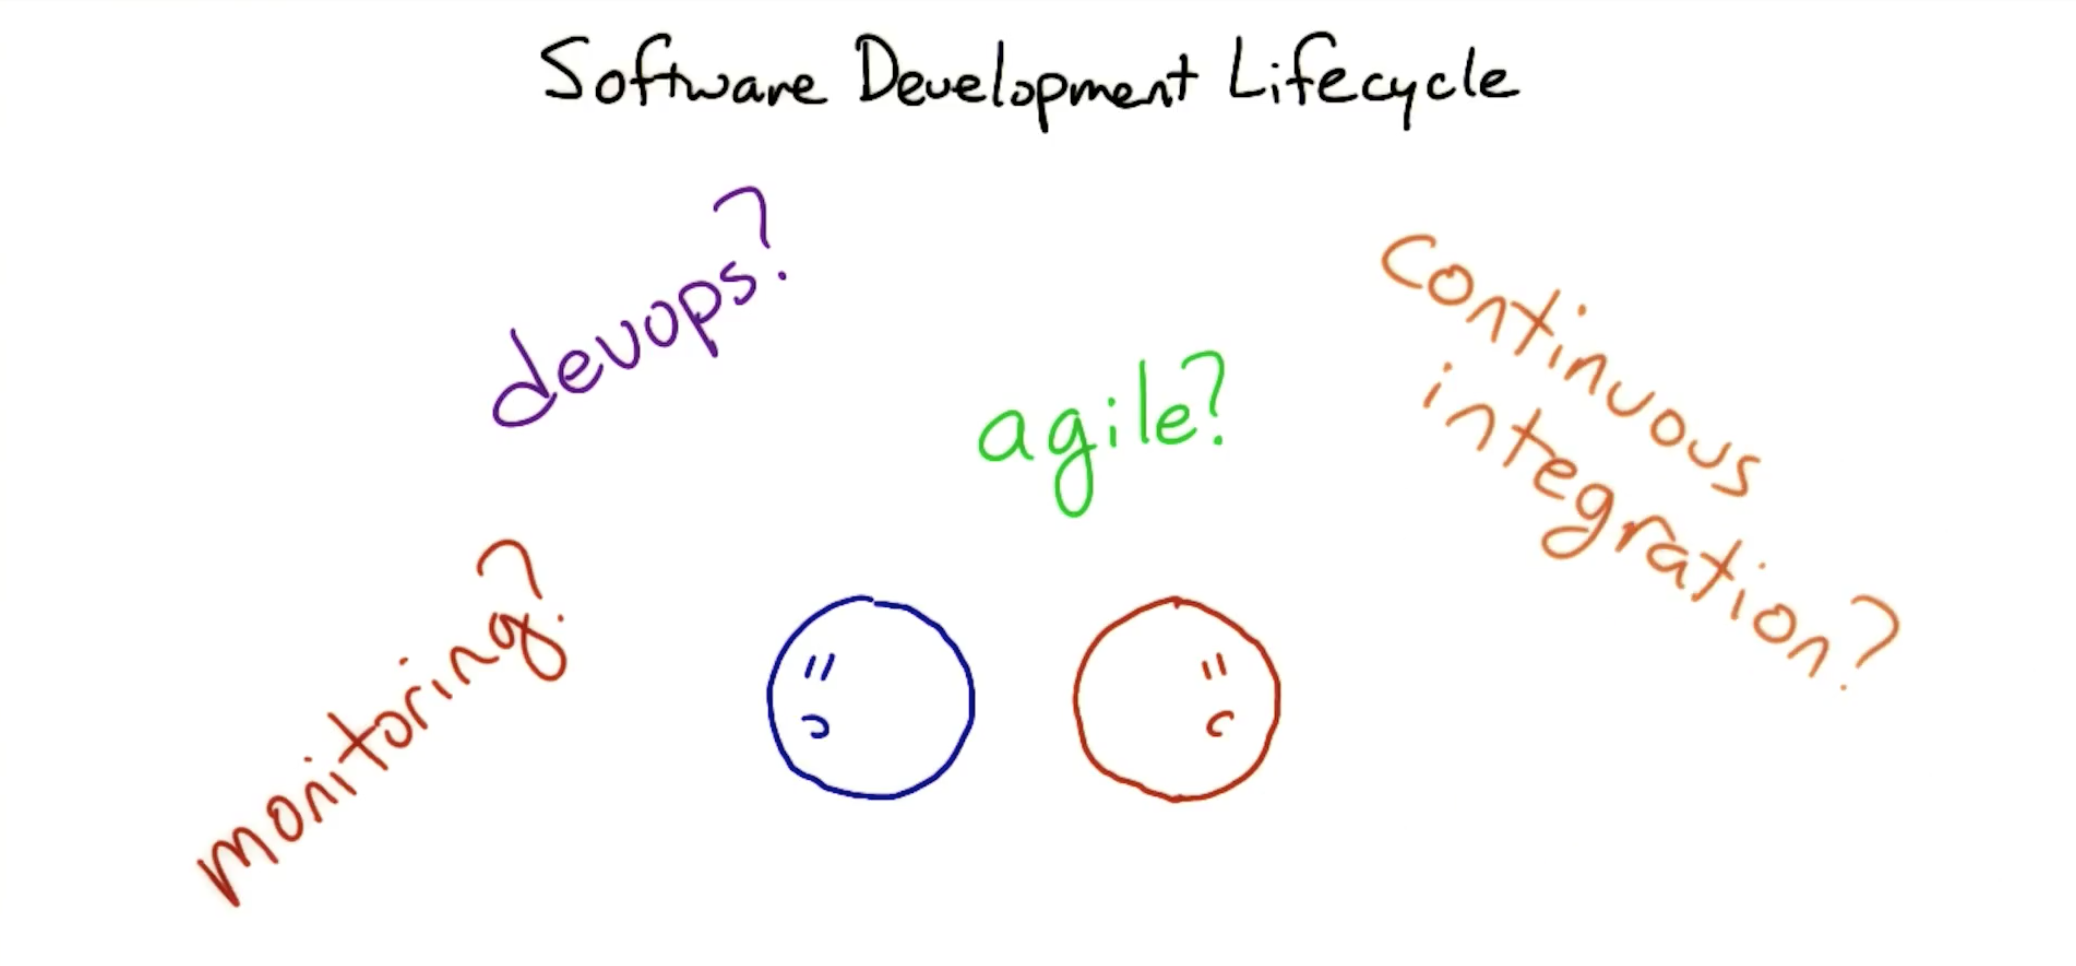 Software Development Lifecycle
devops?
agile?
continuous
integration?
monitoring?